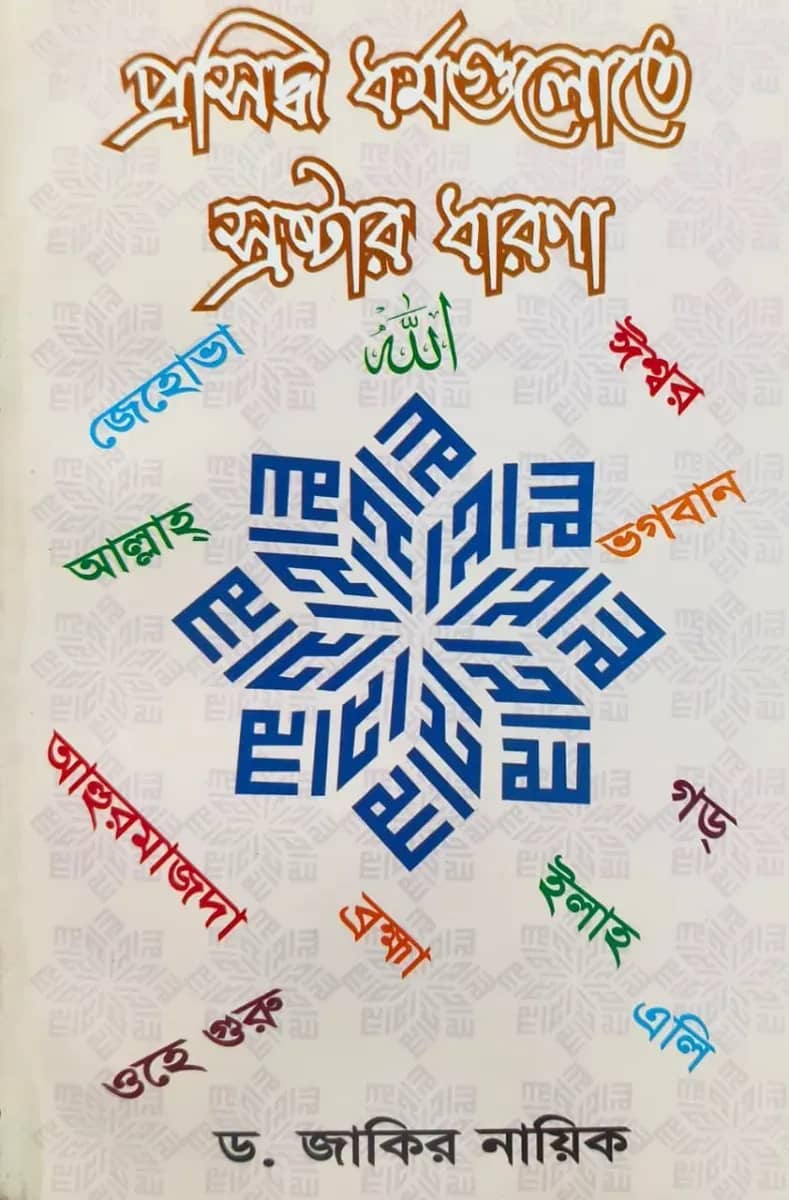 প্রসিদ্ধ ধর্মগুলোতে
স্রষ্টার ধারণা
الله
জেহোভা
ঈশ্বর
আল্লাহ্
ভগবান
আহুরমাজদা
গড্
ব্রহ্মা
ইলাহ
ওহে গুরু
এলি
ড. জাকির নায়িক